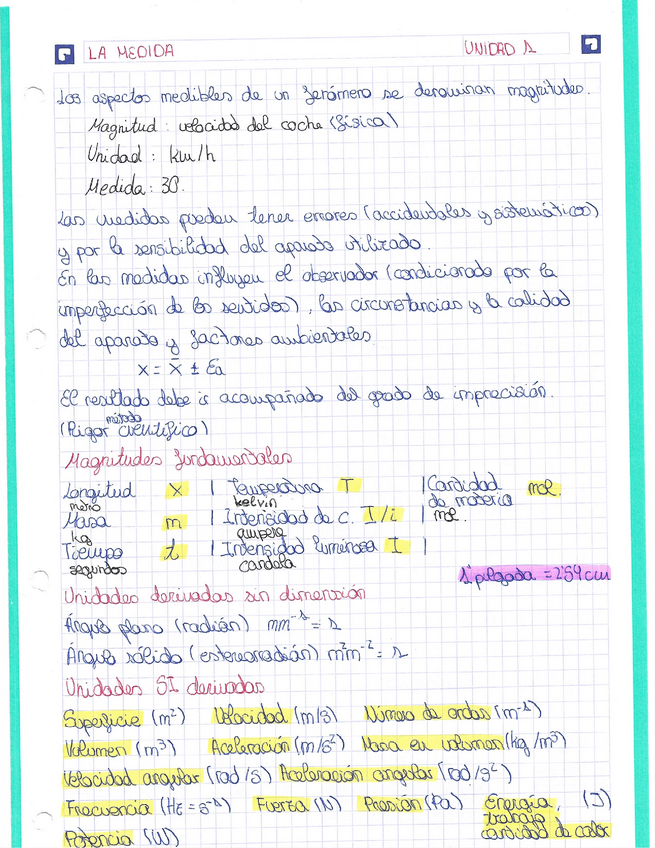 LA MEDIDA UNIDAD 1
Los aspectos medibles de un fenómeno se denominan magnitudes.
Magnitud : velocidad del coche (física)
Unidad : km/h
Medida : 30.
Las medidas pueden tener errores (accidentales y sistemáticos)
y por la sensibilidad del aparato utilizado.
En las medidas influyen el observador (condicionado por la
imperfección de los sentidos), las circunstancias y la calidad
del aparato y factores ambientales.
x = x̄ ± Ea
El resultado debe ir acompañado del grado de imprecisión.
método
(Rigor científico)
Magnitudes fundamentales
Longitud x | Temperatura T | Cantidad mol.
metro kelvin de materia
Masa m | Intensidad de c. I/i | mol.
kg ampere
Tiempo t | Intensidad luminosa I |
segundos candela
1" pulgada = 2'54 cm
Unidades derivadas sin dimensión
Ángulo plano (radián) mm⁻¹ = 1
Ángulo sólido (estereorradián) m²m⁻² = 1
Unidades SI derivadas
Superficie (m²) Velocidad (m/s) Número de ondas (m⁻¹)
Volumen (m³) Aceleración (m/s²) Masa en volumen (kg/m³)
Velocidad angular (rad/s) Aceleración angular (rad/s²)
Frecuencia (Hz = s⁻¹) Fuerza (N) Presión (Pa) Energía, (J)
trabajo
Potencia (W) cantidad de calor